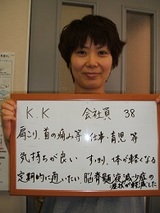 K.K 会社員 38
肩こり、首の痛み等 仕事・育児 等
気持ちが良い すっきり、体が軽くなる
定期的に通いたい。脳脊髄液減少症の
症状が軽減した